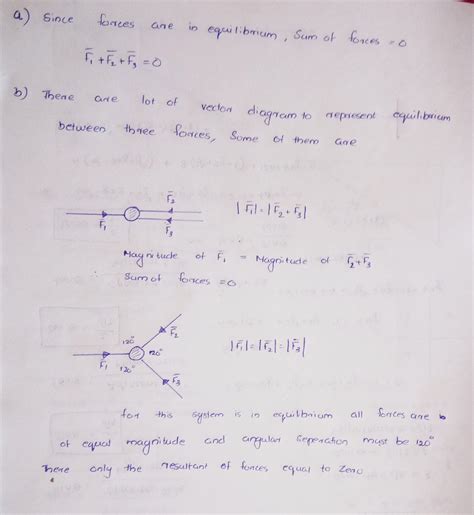 a) Since forces are in equilibrium, Sum of forces = 0
F̅₁ + F̅₂ + F̅₃ = 0
b) There are lot of vector diagram to represent equilibrium
between three forces, Some of them are
F̅₂
F̅₁
F̅₃
|F̅₁| = |F̅₂ + F̅₃|
Magnitude of F̅₁ = Magnitude of F̅₂ + F̅₃
Sum of forces = 0
F̅₂
120°
120°
F̅₁
120°
F̅₃
|F̅₁| = |F̅₂| = |F̅₃|
for this system is in equilibrium all forces are
of equal magnitude and angular seperation must be 120°
There only the resultant of forces equal to zero